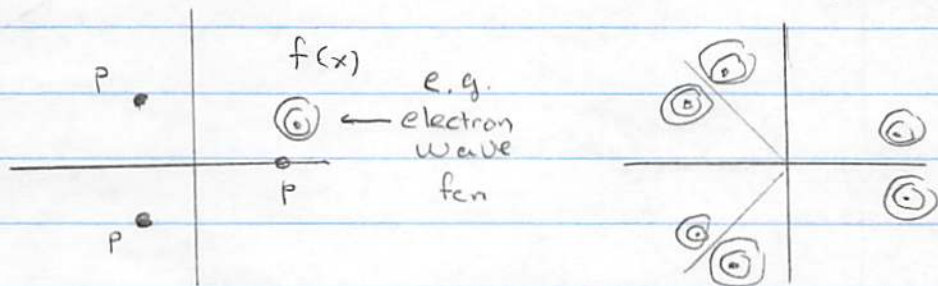 f(x)
p
e.g.
electron
wave
p
fcn
p